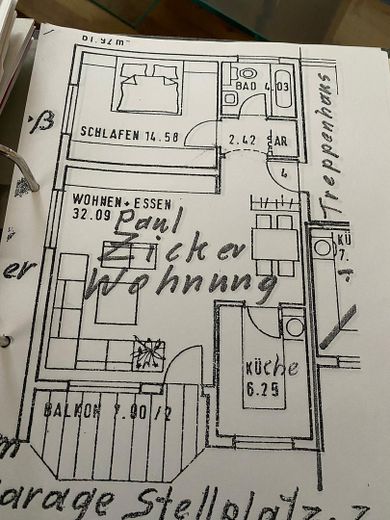 61.92 m²
ß
BAD 4.03
SCHLAFEN 14.58
2.42
AR
Treppenhaus
4
WOHNEN + ESSEN
32.09
Paul
Zicker
Wohnung
er
KÜ
7.
KÜche
6.25
BALKON 7.90 /2
m
Garage Stellplatz.